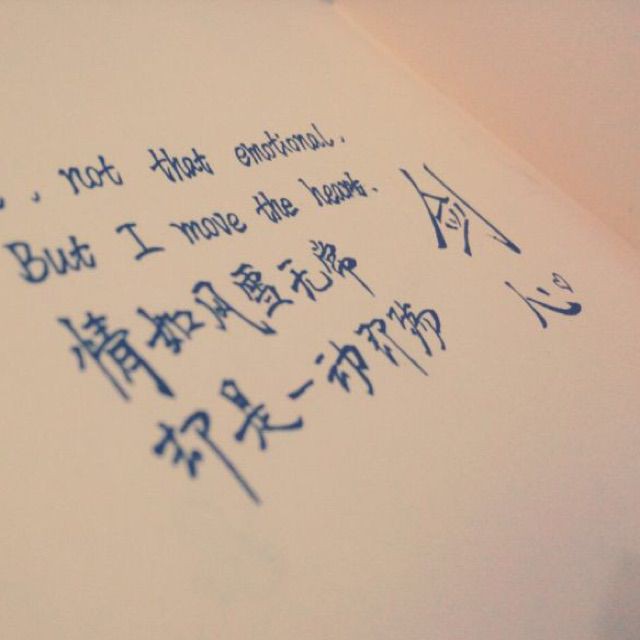 , not that emotional.
But I move the heart.
情如风雪无常
却是一动
剑心。